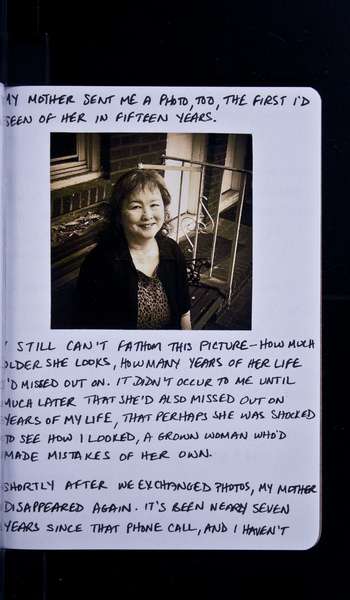 MY MOTHER SENT ME A PHOTO, TOO, THE FIRST I'D
SEEN OF HER IN FIFTEEN YEARS.
I STILL CAN'T FATHOM THIS PICTURE — HOW MUCH
OLDER SHE LOOKS, HOW MANY YEARS OF HER LIFE
I'D MISSED OUT ON. IT DIDN'T OCCUR TO ME UNTIL
MUCH LATER THAT SHE'D ALSO MISSED OUT ON
YEARS OF MY LIFE, THAT PERHAPS SHE WAS SHOCKED
TO SEE HOW I LOOKED, A GROWN WOMAN WHO'D
MADE MISTAKES OF HER OWN.
SHORTLY AFTER WE EXCHANGED PHOTOS, MY MOTHER
DISAPPEARED AGAIN. IT'S BEEN NEARLY SEVEN
YEARS SINCE THAT PHONE CALL, AND I HAVEN'T